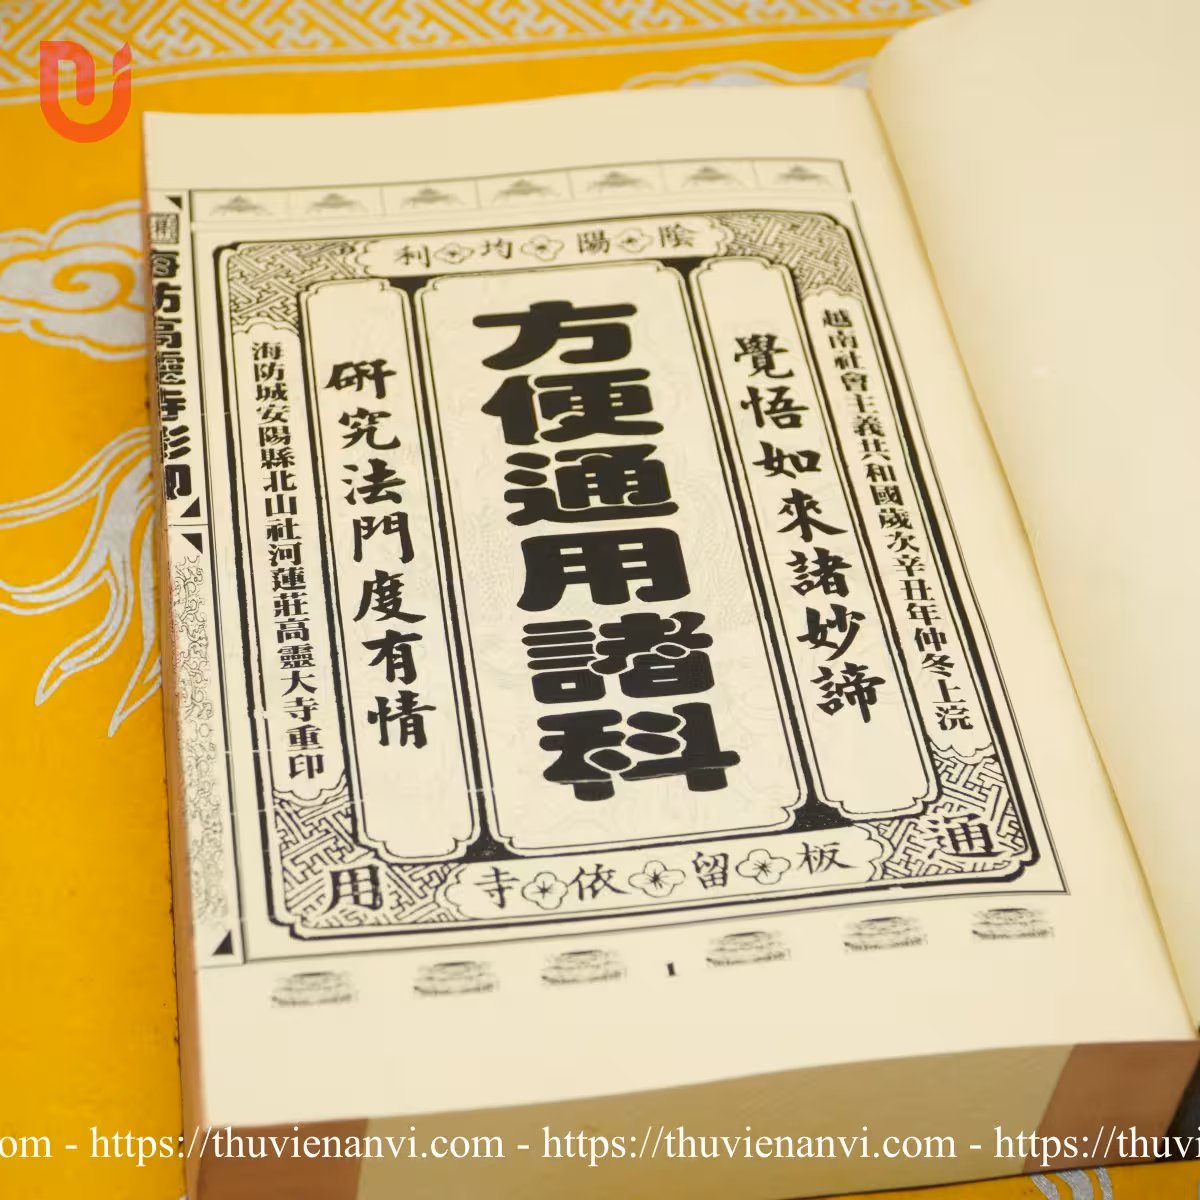 陰陽均利
越南社會主義共和國歲次辛丑年仲冬上浣
覺悟如來諸妙諦
方便通用諸科
研究法門度有情
海防城安陽縣北山社河蓮莊高靈大寺重印
通用
板留依寺
海防高靈寺影印
1
om - https://thuvienanvi.com - https://thuvienanvi.com - https://thuvi